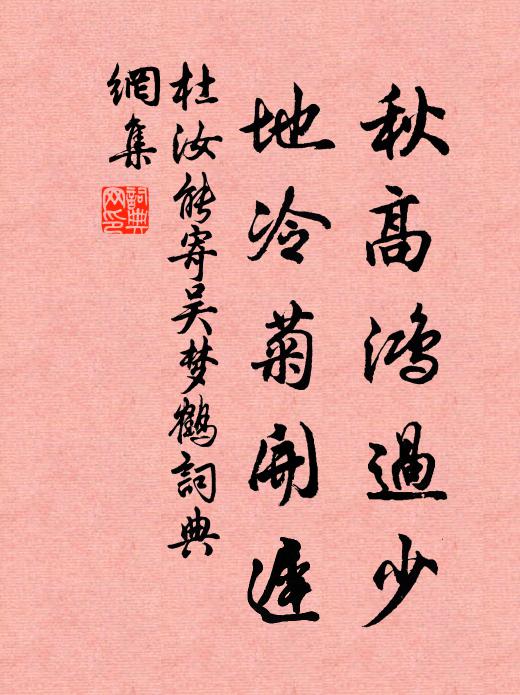 秋高鴻過少
地冷菊開遲
杜汝能寄吴梦鶴詞典
網集
詞典網印